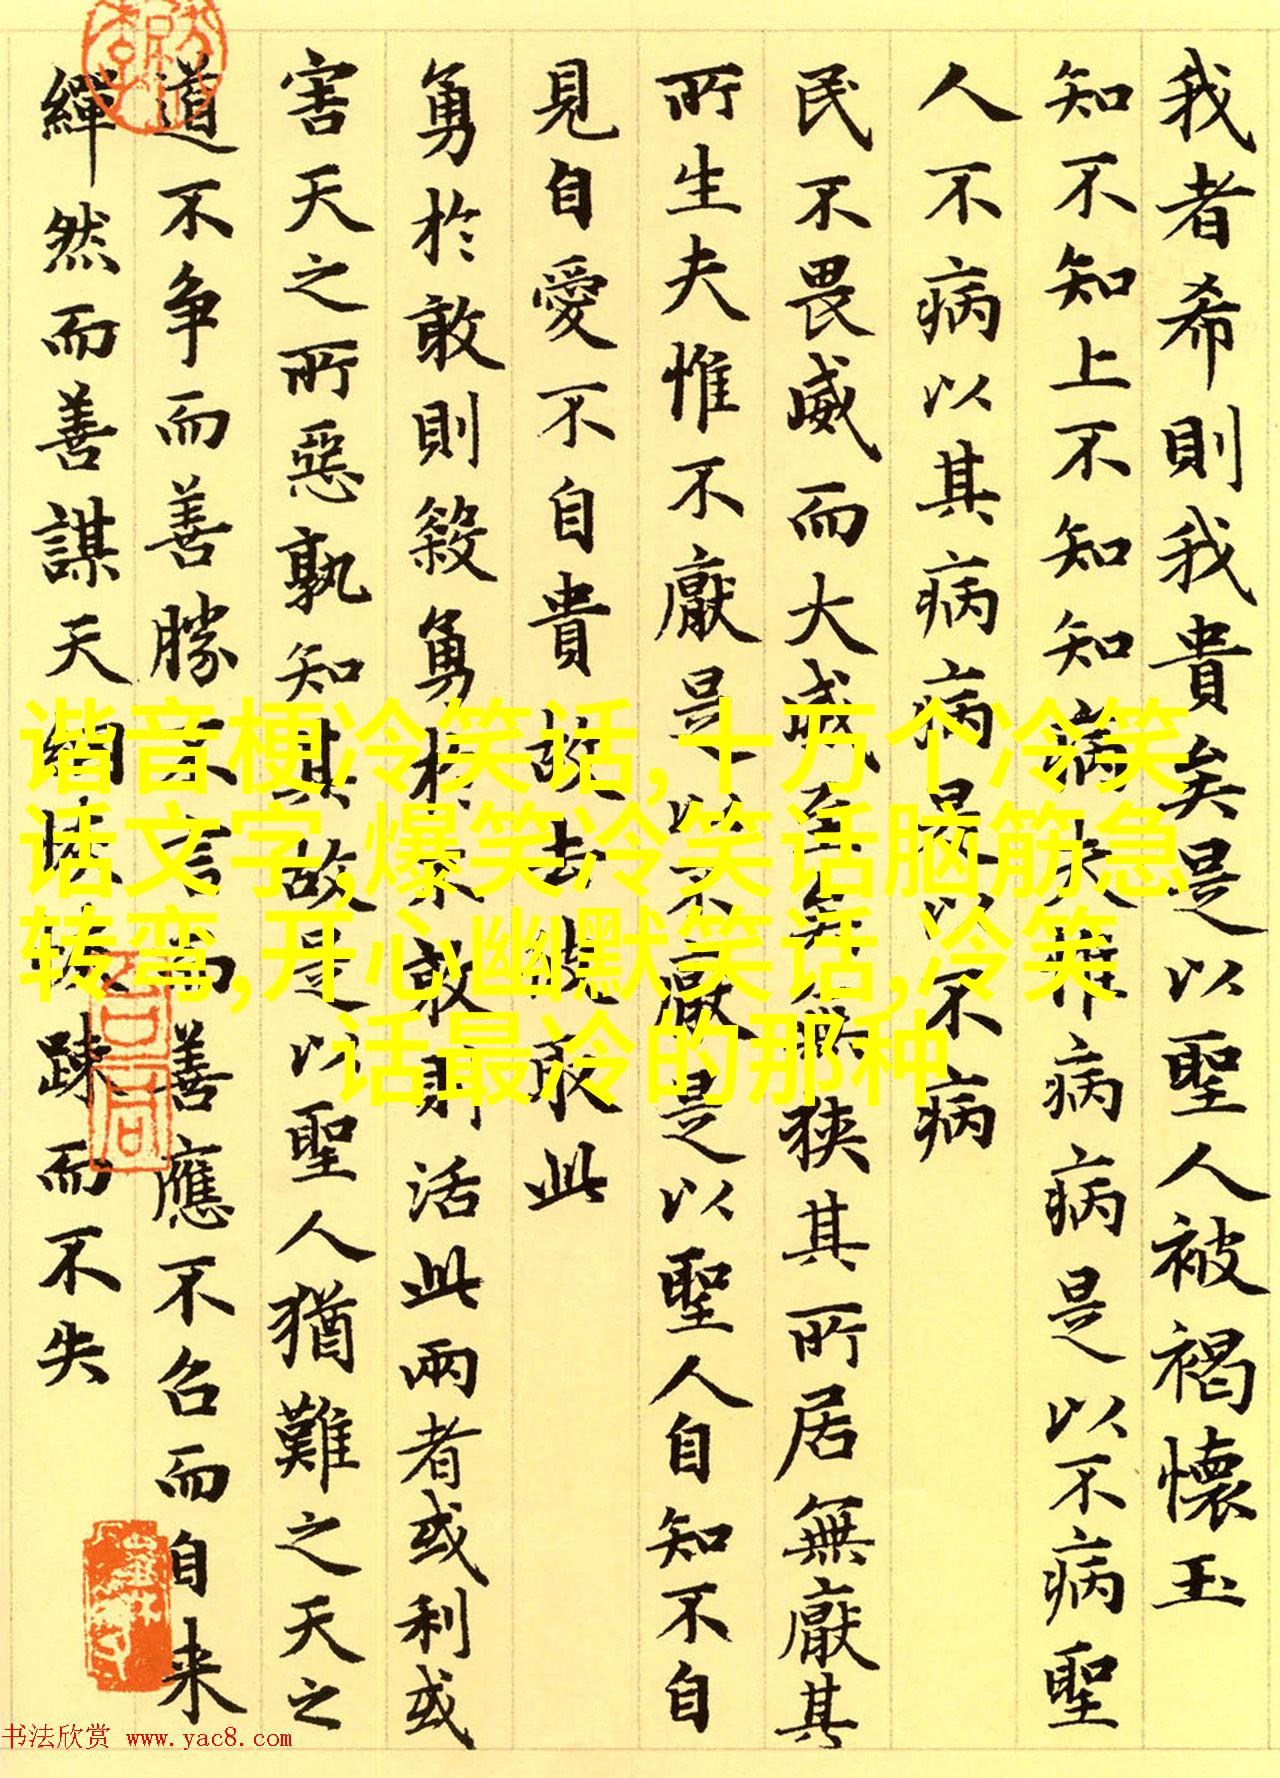 我者希則我貴矣是以聖人被褐懷玉
知不知上不知知病夫惟病病是以不病聖
人不病以其病病是以不病
民不畏威而大威至矣無狹其所居無厭其
所生夫惟不厭是以不厭是以聖人自知不自
見自愛不自貴故去彼取此
勇於敢則殺勇於不敢則活此兩者或利或
害天之所惡孰知其故是以聖人猶難之天之
道不争而善勝不言而善應不召而自来
繟然而善謀天網恢恢踈而不失
谐音梗冷笑话,十万个冷笑
话文字,爆笑冷笑话脑筋急
转弯,开心幽默笑话,冷笑
话最冷的那种
书法欣赏 www.yac8.com